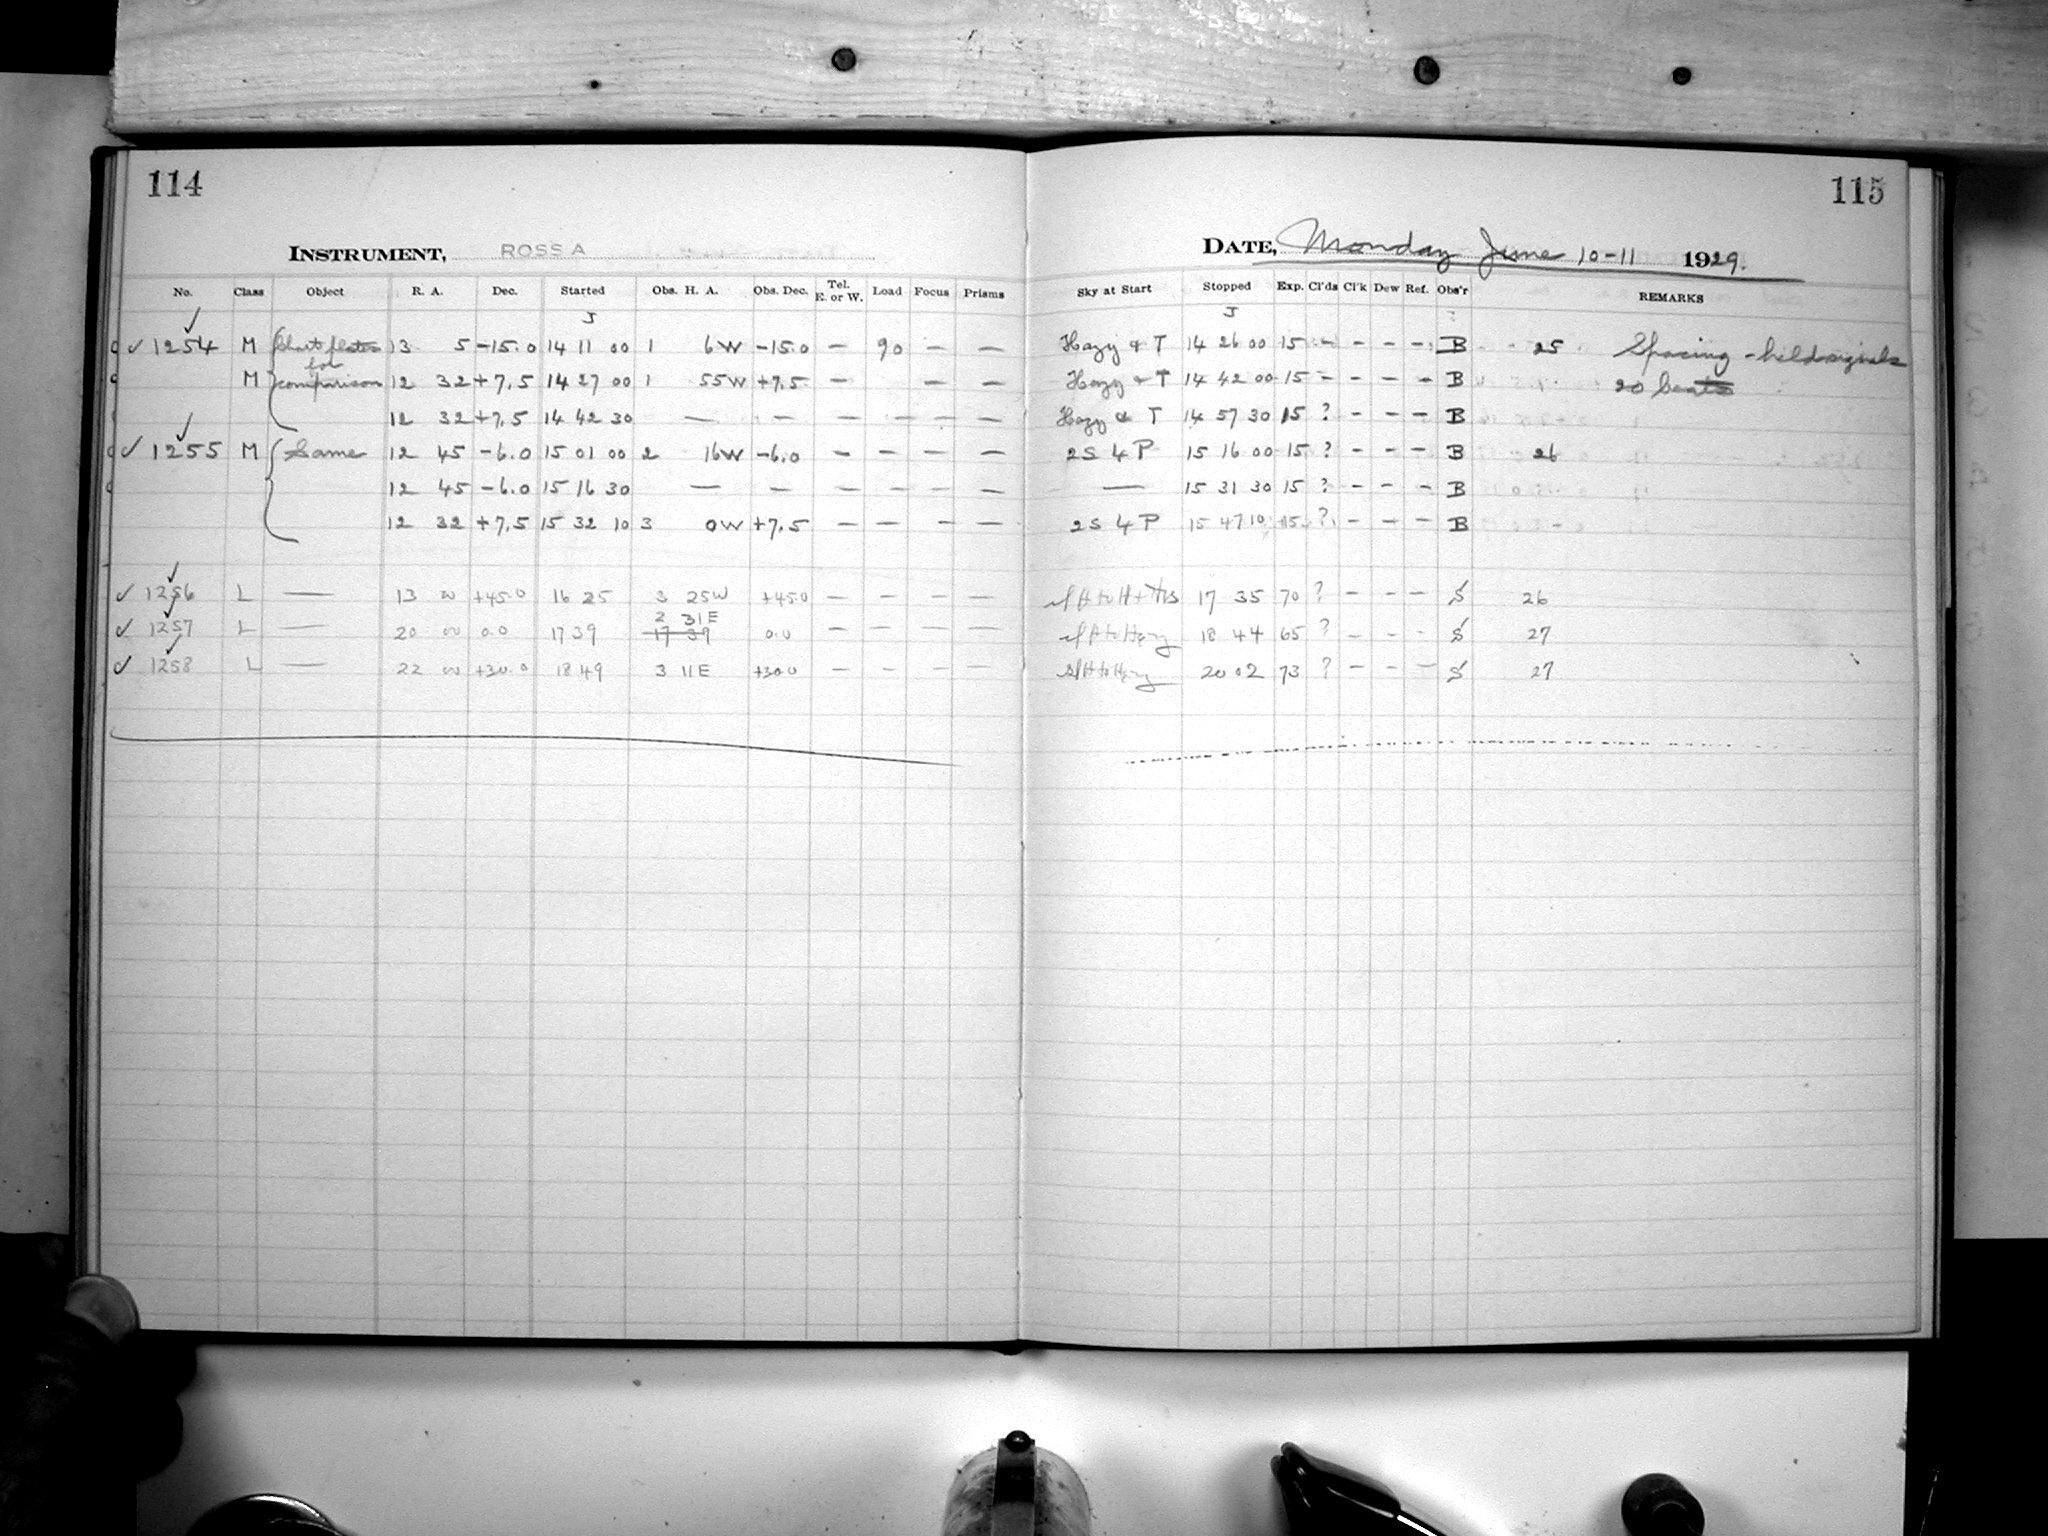 114
115
INSTRUMENT, ROSS A
DATE, Monday June 10-11 1929.
No. Class Object R. A. Dec. Started Obs. H. A. Obs. Dec. Tel. E. or W. Load Focus Prisms Sky at Start Stopped Exp. Cl'ds Cl'k Dew Ref. Obs'r REMARKS
J J
✓ 1254 M Short plates 13 5 -15.0 14 11 00 1 6W -15.0 — 90 — — Hazy & T 14 26 00 15 - - - - B 25 Spacing - held signals
for
M comparison 12 32 +7.5 14 27 00 1 55W +7.5 — — — Hazy + T 14 42 00 15 - - - - B 20 beats
12 32 +7.5 14 42 30 — — — — — — Hazy & T 14 57 30 15 ? - - - B
✓ 1255 M Same 12 45 -6.0 15 01 00 2 16W -6.0 — — — — 2S 4P 15 16 00 15 ? - - - B 26
12 45 -6.0 15 16 30 — — — — — — — 15 31 30 15 ? - - - B
12 32 +7.5 15 32 10 3 0W +7.5 — — — — 2S 4P 15 47 10 15 ? - - - B
✓ 1256 L — 13 00 +45.0 16 25 3 25W +45.0 — — — — 17 35 70 ? - - - S 26
2 31E
✓ 1257 L — 20 00 0.0 17 39 17 39 0.0 — — — — 18 44 65 ? - - - S 27
✓ 1258 L — 22 00 +30.0 18 49 3 11E +30.0 — — — — 20 02 73 ? - - - S 27